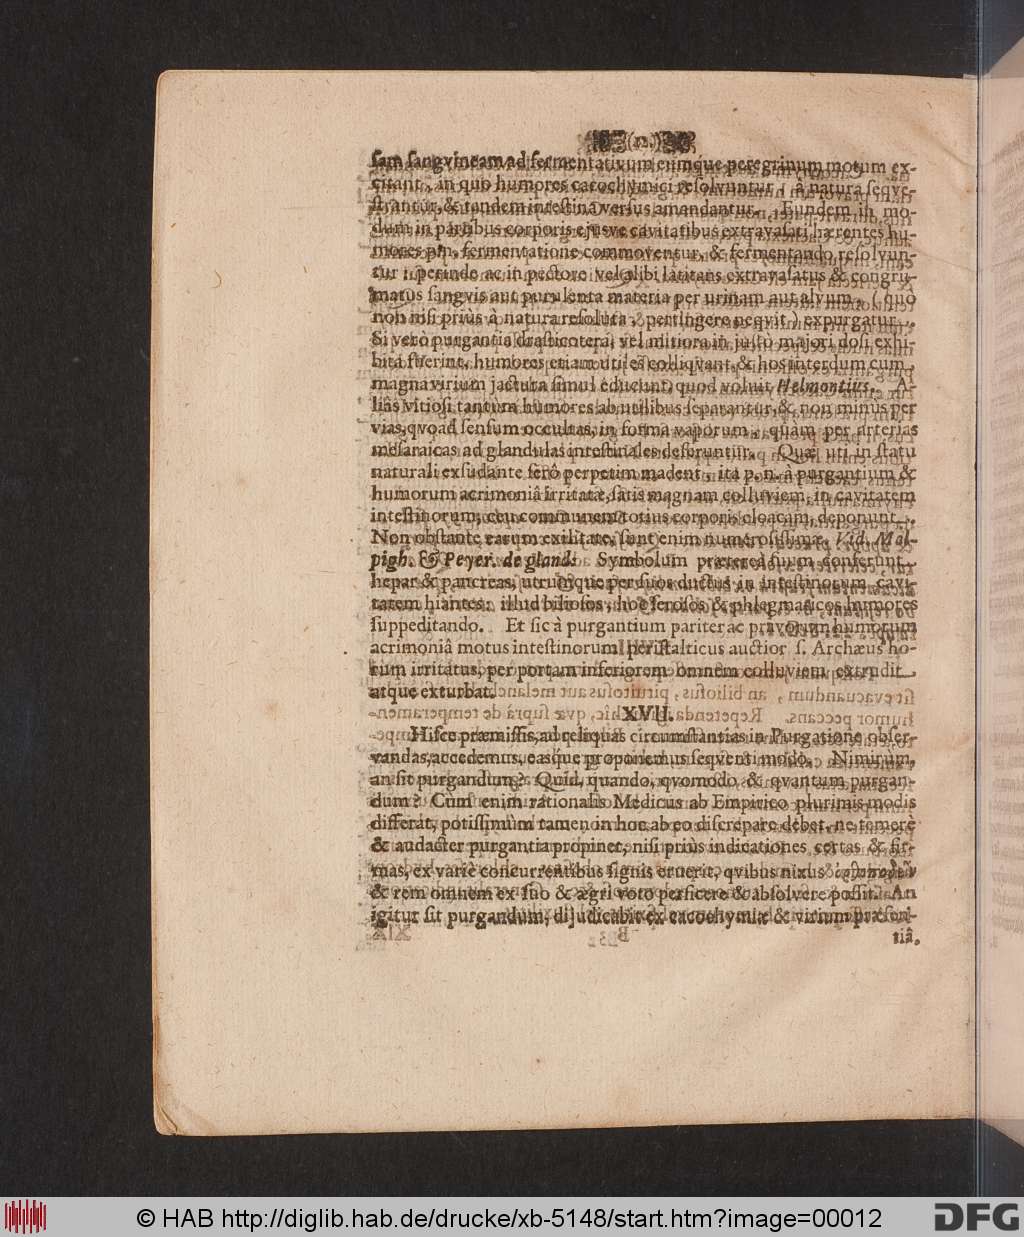 (12.)
ſam ſangvineam ad fermentativum eumque peregrinum motum ex-
citant, in quo humores cacochymici reſolvuntur, à natura ſeqve-
ſtrantur, & tandem inteſtina verſus amandantur. Eundem in mo-
dum in partibus corporis ejusve cavitatibus extravaſati hærentes hu-
mores p.n. fermentatione commoventur, & fermentando reſolvun-
tur: perinde ac in pectore vel alibi latitans extravaſatus & congru-
matus ſangvis aut purulenta materia per urinam aut alvum, (quò
non niſi priùs à natura reſoluta, pertingere neqvit) expurgatur.
Si verò purgantia draſticotera, vel mitiora in juſtò majori doſi exhi-
bita fuerint, humores etiam utiles colliqvant, & hos interdum cum
magna virium jactura ſimul educunt, quod voluit Helmontius. A-
liâs vitioſi tantùm humores ab utilibus ſeparantur, & non minus per
vias, qvoad ſenſum occultas, in forma vaporum, quàm per arterias
meſaraicas ad glandulas inteſtinales deferuntur. Quæ uti in ſtatu
naturali exſudante ferô perpetim madent, ita p. n. à purgantium &
humorum acrimoniâ irritatæ, ſatis magnam colluviem, in cavitatem
inteſtinorum, ceu communem totius corporis cloacam, deponunt,
Non obſtante earum exilitate, ſunt enim numeroſiſſimæ. Vid. Mal-
pigh. & Peyer. de gland. Symbolum præterea ſuum conferunt
hepar & pancreas, utrumque per ſuos ductus in inteſtinorum cavi-
tatem hiantes: illud bilioſos, hoc ſeroſos & phlegmaticos humores
ſuppeditando. Et ſic à purgantium pariter ac pravorum humorum
acrimoniâ motus inteſtinorum periſtalticus auctior ſ. Archæus ho-
rum irritatus, per portam inferiorem omnem colluviem extrudit
atque exturbat.
XVII.
Hiſce præmiſſis, ad reliquas circumſtantias in Purgatione obſer-
vandas, accedemus, easque proponemus ſeqventi modo. Nimirum,
an ſit purgandum? Quid, quando, qvomodo & qvantum purgan-
dum? Cum enim rationalis Medicus ab Empirico plurimis modis
differat, potiſſimùm tamen in hoc ab eo diſcrepare debet, ne temerè
& audacter purgantia propinet, niſi priùs indicationes certas & fir-
mas, ex variè concurrentibus ſignis eruerit, qvibus nixus
& rem omnem ex ſuo & ægri voto perficere & abſolvere poſſit. An
igitur ſit purgandum, dijudicabit ex cacochymiæ & virium præſen-
tiâ.
© HAB http://diglib.hab.de/drucke/xb-5148/start.htm?image=00012
DFG